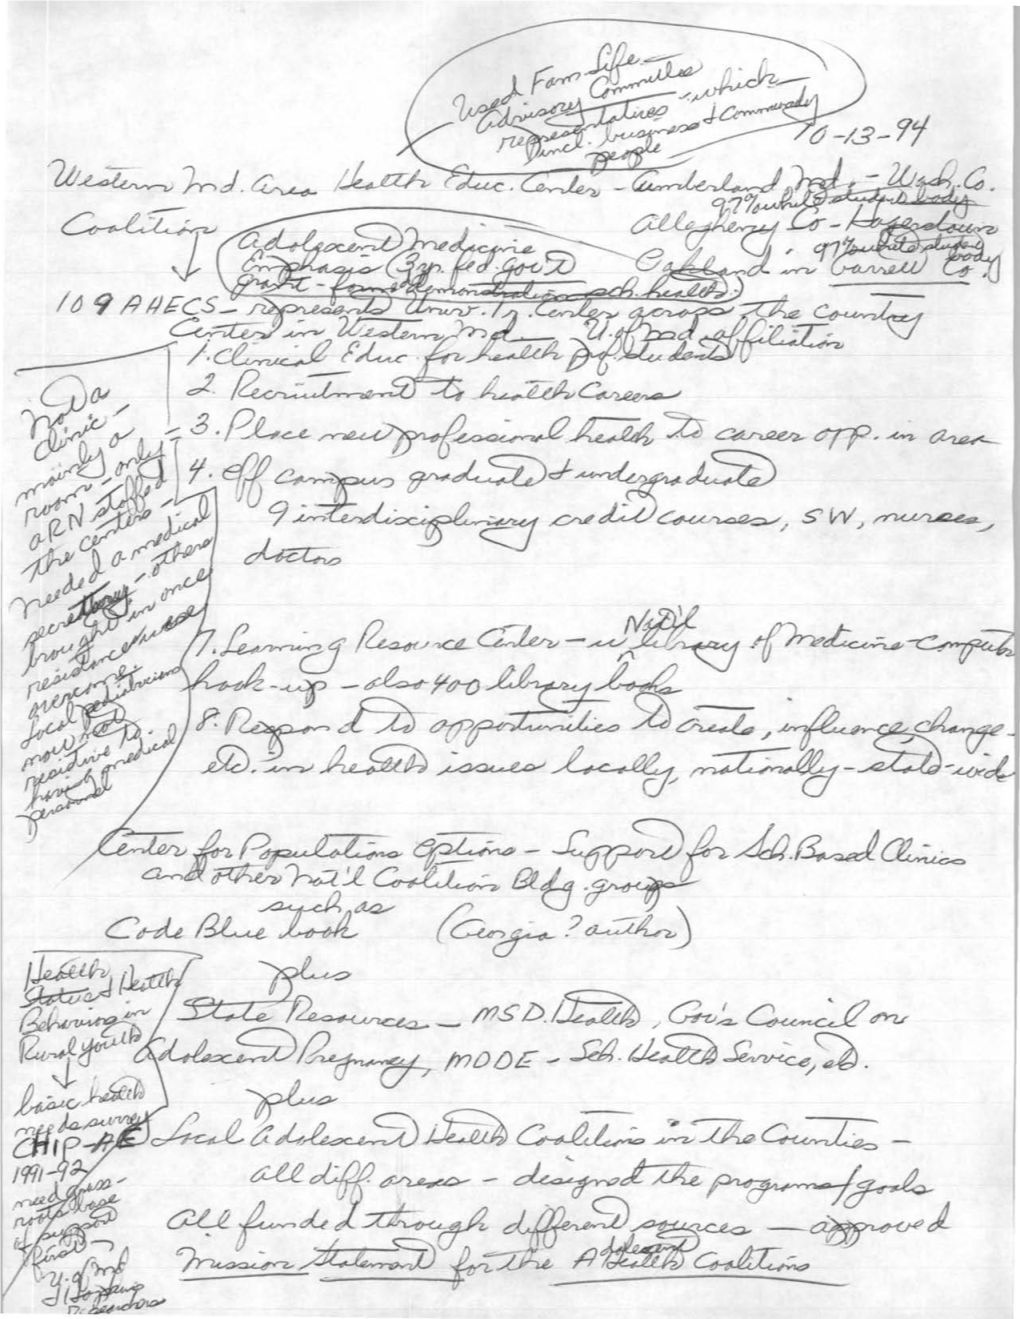 Used Fam-Life
Advisory Committee
representatives - which
incl. business & community
people
10-13-94
Western Md. Area Health Educ. Center - Cumberland Md. - Wash. Co.
97% white student body
Coalition
Allegheny Co - Hagerstown
97% white student body
Oakland in Garrett Co.
Adolescent Medicine
Emphasis (3 yr. fed. gov't
grant - for demonstration sch. health)
109 AHECS - represents Univ. Center across the country
Center in Western Md - U. of Md. affiliation
1. Clinical Educ. for health prof. students
2. Recruitment to health careers
3. Place new professional health to career opp. in area
4. Off campus graduate & undergraduate
9 interdisciplinary credit courses, SW, nurses,
doctors
7. Learning Resource Center - w Nat'l library of Medicine - computer
hook-up - also 400 library books
8. Respond to opportunities to create, influence, change -
etc. in health issues locally, nationally - state-wide
Not a
clinic -
mainly a
room - only
a RN staffed
the centers -
needed a medical
secretary - others
brought in once
resistance was
overcome.
Local pediatricians
now not
resistive to
having medical
personal
Center for Populations Options - Support for Sch. Based Clinics
and other Nat'l Coalition Bldg. groups
such as
Code Blue book (Georgia? author)
plus
State Resources - MSD. Health, Gov's Council on
Adolescent Pregnancy, MDDE - Sch. Health Service, etc.
plus
Local Adolescent Health Coalitions in the Counties -
all diff. areas - designed the programs/goals
All funded through different sources - approved
Mission Statement for the Adolescent Health Coalitions
Health
Status & Health
Behaviors in
Rural youth
basic health
needs survey
CHIP-AE
1991-92
need grass-
roots base
of support
first -
U. of Md
J Hopkins
Researchers